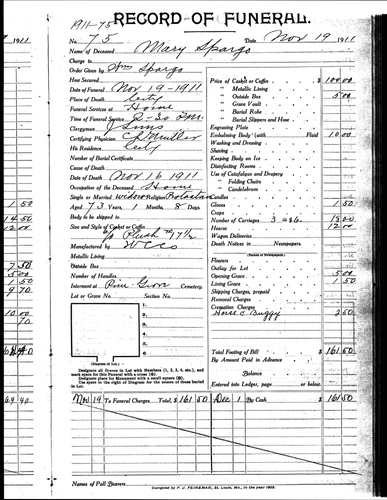 1911
1911-75
RECORD OF FUNERAL.
No. 75 Date Nov 19 1911
Name of Deceased Mary Spargo
Charge to
Order Given by Wm Spargo
How Secured
Date of Funeral Nov 19-1911
Place of Death City
Funeral Services at Home
Time of Funeral Service 2-30 P.M.
Clergyman
Certifying Physician Muller
His Residence City
Number of Burial Certificate
Cause of Death
Date of Death Nov 16 1911
Occupation of the Deceased Home
Single or Married widow Religion Protestant
Aged 73 Years, 1 Months, 8 Days
Body to be shipped to
Size and Style of Casket or Coffin
6/ Plush
Manufactured by W C Co
Metallic Lining
Outside Box
Number of Handles
Interment at Pine Grove Cemetery.
Lot or Grave No. Section No.
1.
2.
3.
4.
5.
6.
(Diagram of Lot.)
Designate all Graves in Lot with Numbers (1, 2, 3, 4, etc.), and mark space for this Funeral with a cross
Designate place for Monument with a small square
Use space to the right of Diagram for the names of those buried in Lot.
Price of Casket or Coffin $ 100 00
" Metallic Lining
" Outside Box 5 00
" Grave Vault
" Burial Robe
" Burial Slippers and Hose
Engraving Plate
Embalming Body (with Fluid 10 00
Washing and Dressing
Shaving
Keeping Body on Ice
Disinfecting Rooms
Use of Catafalque and Drapery
" Folding Chairs
" Candelabrum
Candles
Gloves 1 50
Crape
Number of Carriages 3 18 00
Hearse 12 00
Wagon Deliveries
Death Notices in Newspapers.
(Names of Newspapers)
Flowers
Outlay for Lot
Opening Grave 5 00
Lining Grave 1 50
Shipping Charges, prepaid
Removal Charges
Cremation Charges
Horse & Buggy 2 50
Total Footing of Bill $ 161 50
By Amount Paid in Advance
Balance
Entered into Ledger, page or below.
19 To Funeral Charges Total, $ 161 50 Dec 1 By Cash $ 161 50
Names of Pall Bearers
Compiled by F. J. FEINEMAN, St. Louis, Mo., in the year 1902.
1 50
14 50
12 00
7 50
5 00
1 50
9 70
10 00
70
64 40